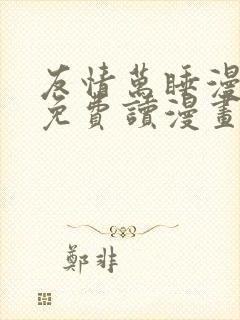 友情萬睡漫
免費讀漫畫
鄭非